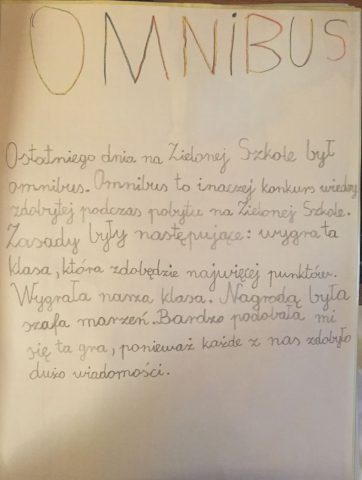 OMNiBUS
Ostatniego dnia na Zielonej Szkole był
omnibus. Omnibus to inaczej konkurs wiedzy
zdobytej podczas pobytu na Zielonej Szkole.
Zasady były następujące: wygra ta
klasa, która zdobędzie najwięcej punktów.
Wygrała nasza klasa. Nagrodą była
szafa marzeń. Bardzo podobała mi
się ta gra, ponieważ każde z nas zdobyło
dużo wiadomości.